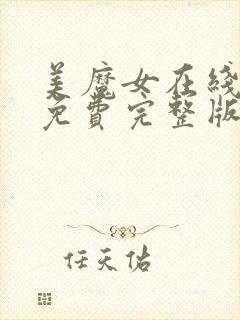 美魔女在线
免費完整版
任天佑